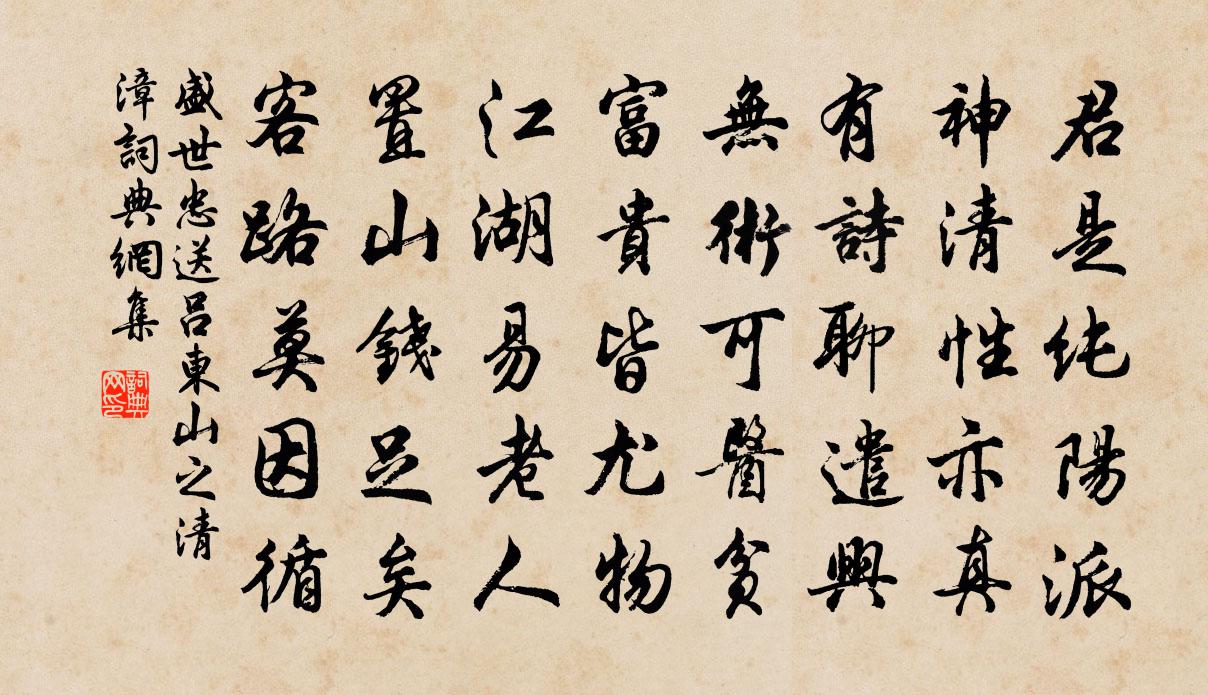 君是纯陽派
神清性亦真
有詩聊遣興
無術可醫貧
富貴皆尤物
江湖易老人
置山錢足矣
客路莫因循
盛世忠送呂東山之清
漳詞典網集
詞典网印